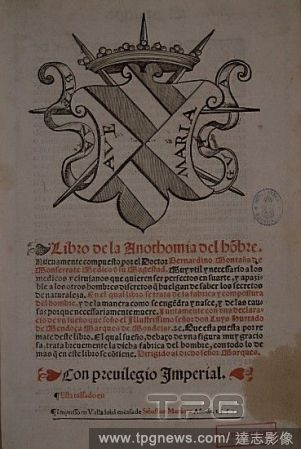 AVE
MARIA
Libro de la Anothomia del hõbre.
Nueuamente compuesto por el Doctor Bernardino Montaña de
Monserrate Medico de su Magestad. Muy vtil y necessario a los
medicos y cirujanos que quieren ser perfectos en su arte, y apazible
a los otros hombres discretos q̃ huelgan de saber los secretos
de naturaleza. En el qual libro se trata de la fabrica y compostura
del hombre, y de la manera como se engẽdra y nasce, y de las causas
porque necessariamente muere. Juntamente con vna declaracion
de vn sueño que soño el Illustrissimo señor don Luys Hurtado
de Mendoça Marques de Mondejar. &c. Que esta puesta por remate
deste libro. El qual sueño, debaxo de vna figura muy graciosa,
trata breuemente la dicha fabrica del hombre, con todo lo demas
q̃ en este libro se cõtiene. Dirigido al dicho señor Marques.
Con preuilegio Imperial.
Esta tassado en
Impresso en Valladolid en casa de Sebastian Martinez
TPG
www.tpgnews.com / 達志影像